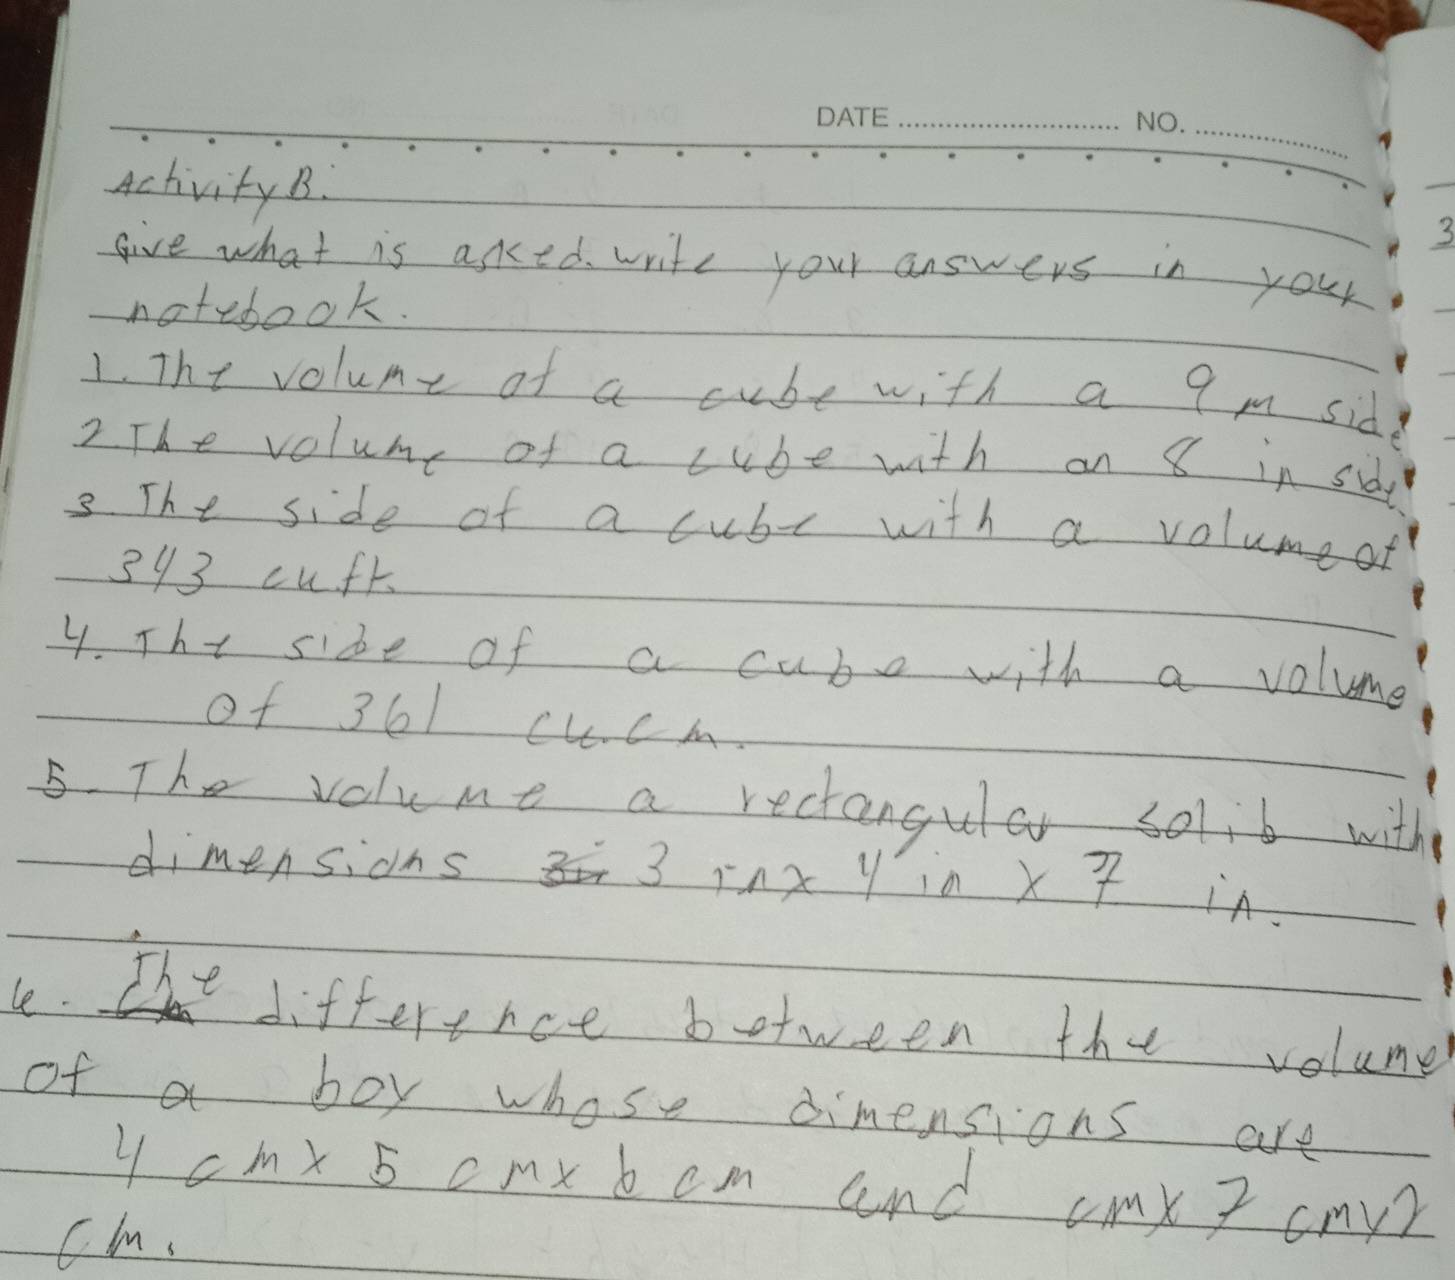 DATE ........................... NO. ....................
Activity B.
Give what is asked. write your answers in your
notebook.
1. The volume of a cube with a 9 m side
2 The volume of a cube with an 8 in side.
3. The side of a cube with a volume of
343 cu ft.
4. The side of a cube with a volume
of 361 cu.cm.
5. The volume a rectangular solib with
dimensions 3 in x 4 in x 7 in.
6. The difference between the volume
of a box whose dimensions are
4 cm x 5 cm x 6 cm and cm x 7 cm x 2
cm.
3